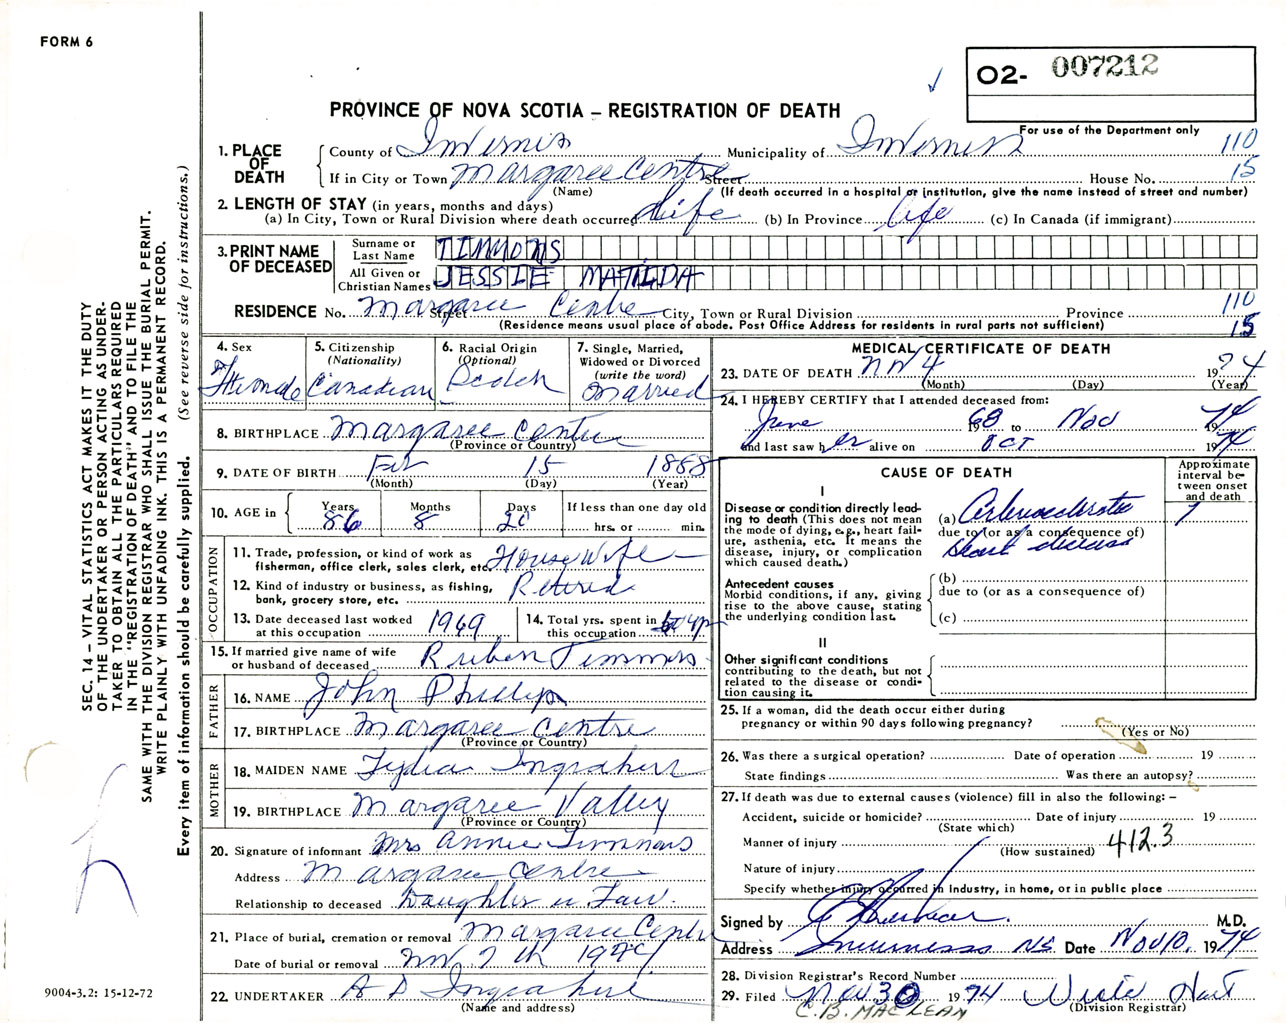 FORM 6
O2- 007212
PROVINCE OF NOVA SCOTIA – REGISTRATION OF DEATH
For use of the Department only
1. PLACE OF DEATH
County of Inverness Municipality of Inverness 110
If in City or Town Margaree Centre Street House No. 15
(Name) (If death occurred in a hospital or institution, give the name instead of street and number)
2. LENGTH OF STAY (in years, months and days)
(a) In City, Town or Rural Division where death occurred Life (b) In Province Life (c) In Canada (if immigrant)
3. PRINT NAME OF DECEASED
Surname or Last Name TIMMONS
All Given or Christian Names JESSIE MATILDA
RESIDENCE No. Margaree Centre Street City, Town or Rural Division Province 110
(Residence means usual place of abode. Post Office Address for residents in rural parts not sufficient) 15
4. Sex Female
5. Citizenship (Nationality) Canadian
6. Racial Origin (Optional) Scotch
7. Single, Married, Widowed or Divorced (write the word) Married
8. BIRTHPLACE Margaree Centre
(Province or Country)
9. DATE OF BIRTH Feb 15 1888
(Month) (Day) (Year)
10. AGE in Years 86 Months 8 Days 20 If less than one day old hrs. or min.
OCCUPATION
11. Trade, profession, or kind of work as fisherman, office clerk, sales clerk, etc. House Wife
12. Kind of industry or business, as fishing, bank, grocery store, etc. Retired
13. Date deceased last worked at this occupation 1969
14. Total yrs. spent in this occupation
15. If married give name of wife or husband of deceased Ruben Timmons
FATHER
16. NAME John Phillips
17. BIRTHPLACE Margaree Centre
(Province or Country)
MOTHER
18. MAIDEN NAME Lydia Ingraham
19. BIRTHPLACE Margaree Valley
(Province or Country)
20. Signature of informant Mrs Annie Timmons
Address Margaree Centre
Relationship to deceased Daughter in Law.
21. Place of burial, cremation or removal Margaree Centre
Date of burial or removal Nov 7th 1974
22. UNDERTAKER A D Ingraham
(Name and address)
MEDICAL CERTIFICATE OF DEATH
23. DATE OF DEATH Nov 4 1974
(Month) (Day) (Year)
24. I HEREBY CERTIFY that I attended deceased from:
June 1968 to Nov 1974
and last saw her alive on Oct 1974
CAUSE OF DEATH
Approximate interval between onset and death
I
Disease or condition directly leading to death (This does not mean the mode of dying, e.g., heart failure, asthenia, etc. It means the disease, injury, or complication which caused death.)
(a) Arteriosclerotic
due to (or as a consequence of)
heart disease
Antecedent causes
Morbid conditions, if any, giving rise to the above cause, stating the underlying condition last.
(b)
due to (or as a consequence of)
(c)
II
Other significant conditions contributing to the death, but not related to the disease or condition causing it.
25. If a woman, did the death occur either during pregnancy or within 90 days following pregnancy?
(Yes or No)
26. Was there a surgical operation? Date of operation 19
State findings Was there an autopsy?
27. If death was due to external causes (violence) fill in also the following: –
Accident, suicide or homicide? Date of injury 19
(State which)
Manner of injury 412.3
(How sustained)
Nature of injury
Specify whether injury occurred in industry, in home, or in public place
Signed by M.D.
Address Inverness NS Date Nov 10, 1974
28. Division Registrar's Record Number
29. Filed Nov 30 1974
(Division Registrar)
C.B. MACLEAN
SEC. 14 – VITAL STATISTICS ACT MAKES IT THE DUTY
OF THE UNDERTAKER OR PERSON ACTING AS UNDER-
TAKER TO OBTAIN ALL THE PARTICULARS REQUIRED
IN THE "REGISTRATION OF DEATH" AND TO FILE THE
SAME WITH THE DIVISION REGISTRAR WHO SHALL ISSUE THE BURIAL PERMIT.
WRITE PLAINLY WITH UNFADING INK. THIS IS A PERMANENT RECORD.
Every item of information should be carefully supplied. (See reverse side for instructions.)
9004-3.2: 15-12-72